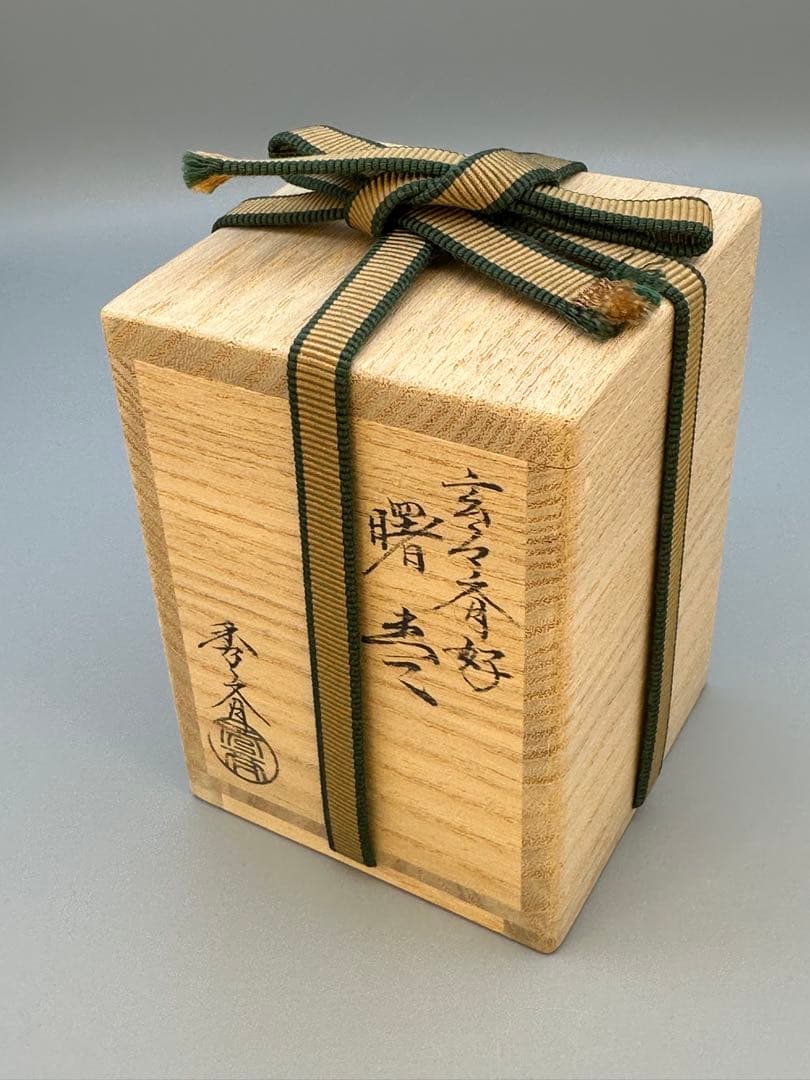 玄々斎好
曙 棗
秀斎